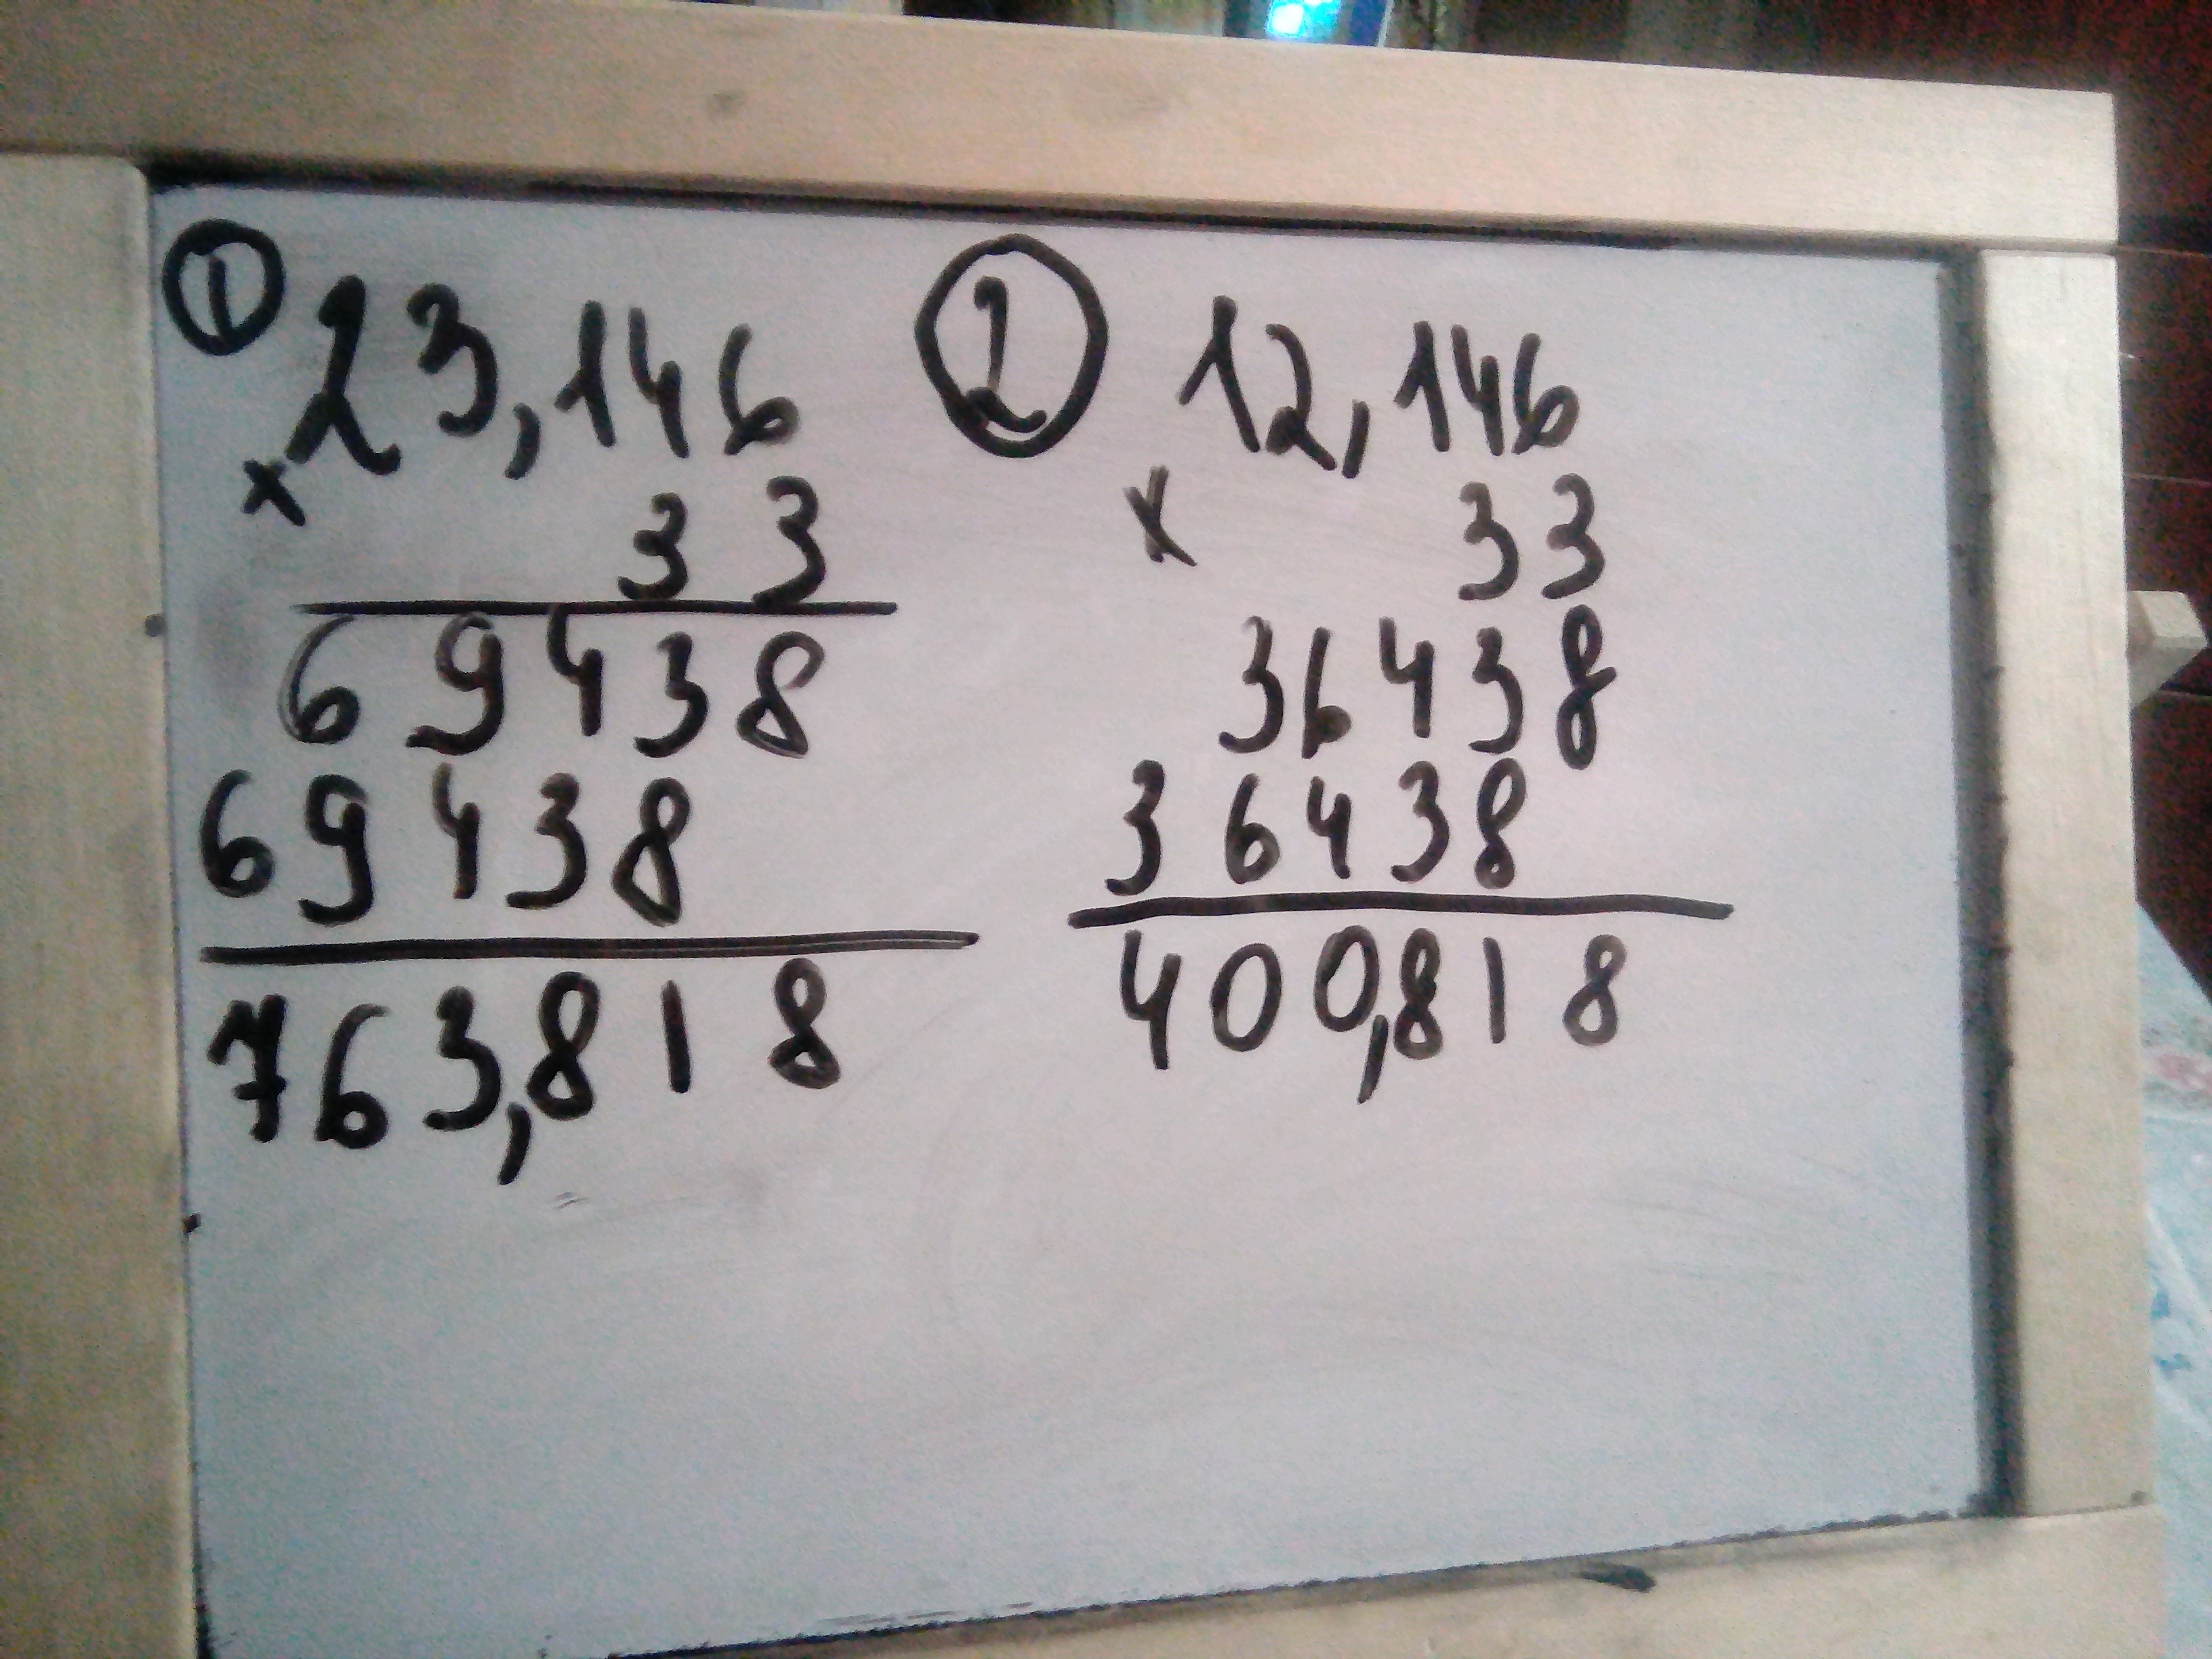 ① 23,146
× 33
69438
69438
763,818
② 12,146
× 33
36438
36438
400,818